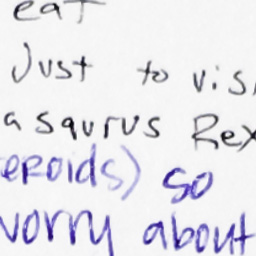 eat
Just to vis
asaurus Rex
eroids) so
worry about